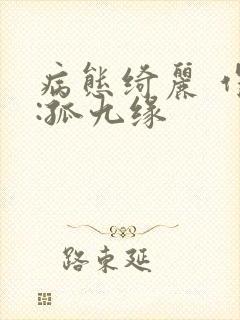 病態绮麗
:孤九缘
路東延